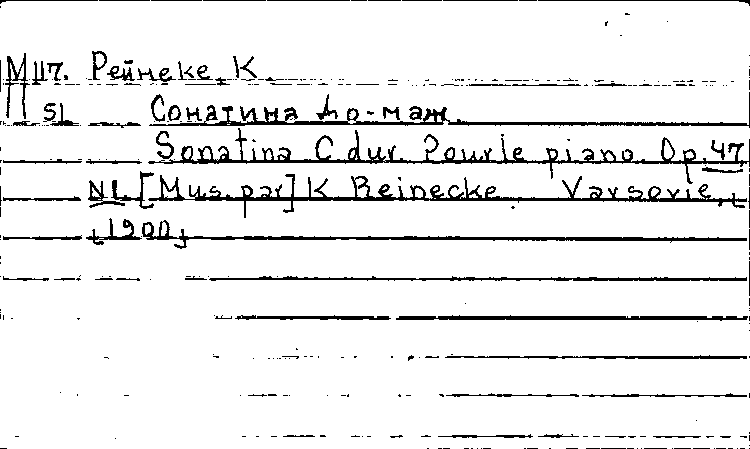 М117. Рейнеке, К.
51 Сонатина До-маж.
Sonatina C dur. Pour le piano. Op. 47
N1. [Mus. par] K Reinecke. Varsovie,
[1900]